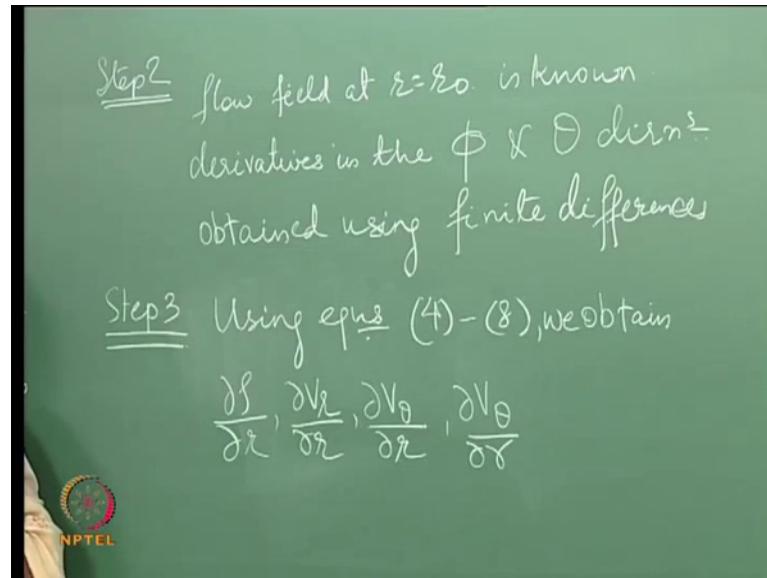 Step2 flow field at r=r0. is known
derivatives in the ϕ & θ dirns
obtained using finite differences
Step3 Using eqns (4)-(8), we obtain
∂ρ/∂r, ∂Vr/∂r, ∂Vθ/∂r, ∂Vθ/∂r
NPTEL